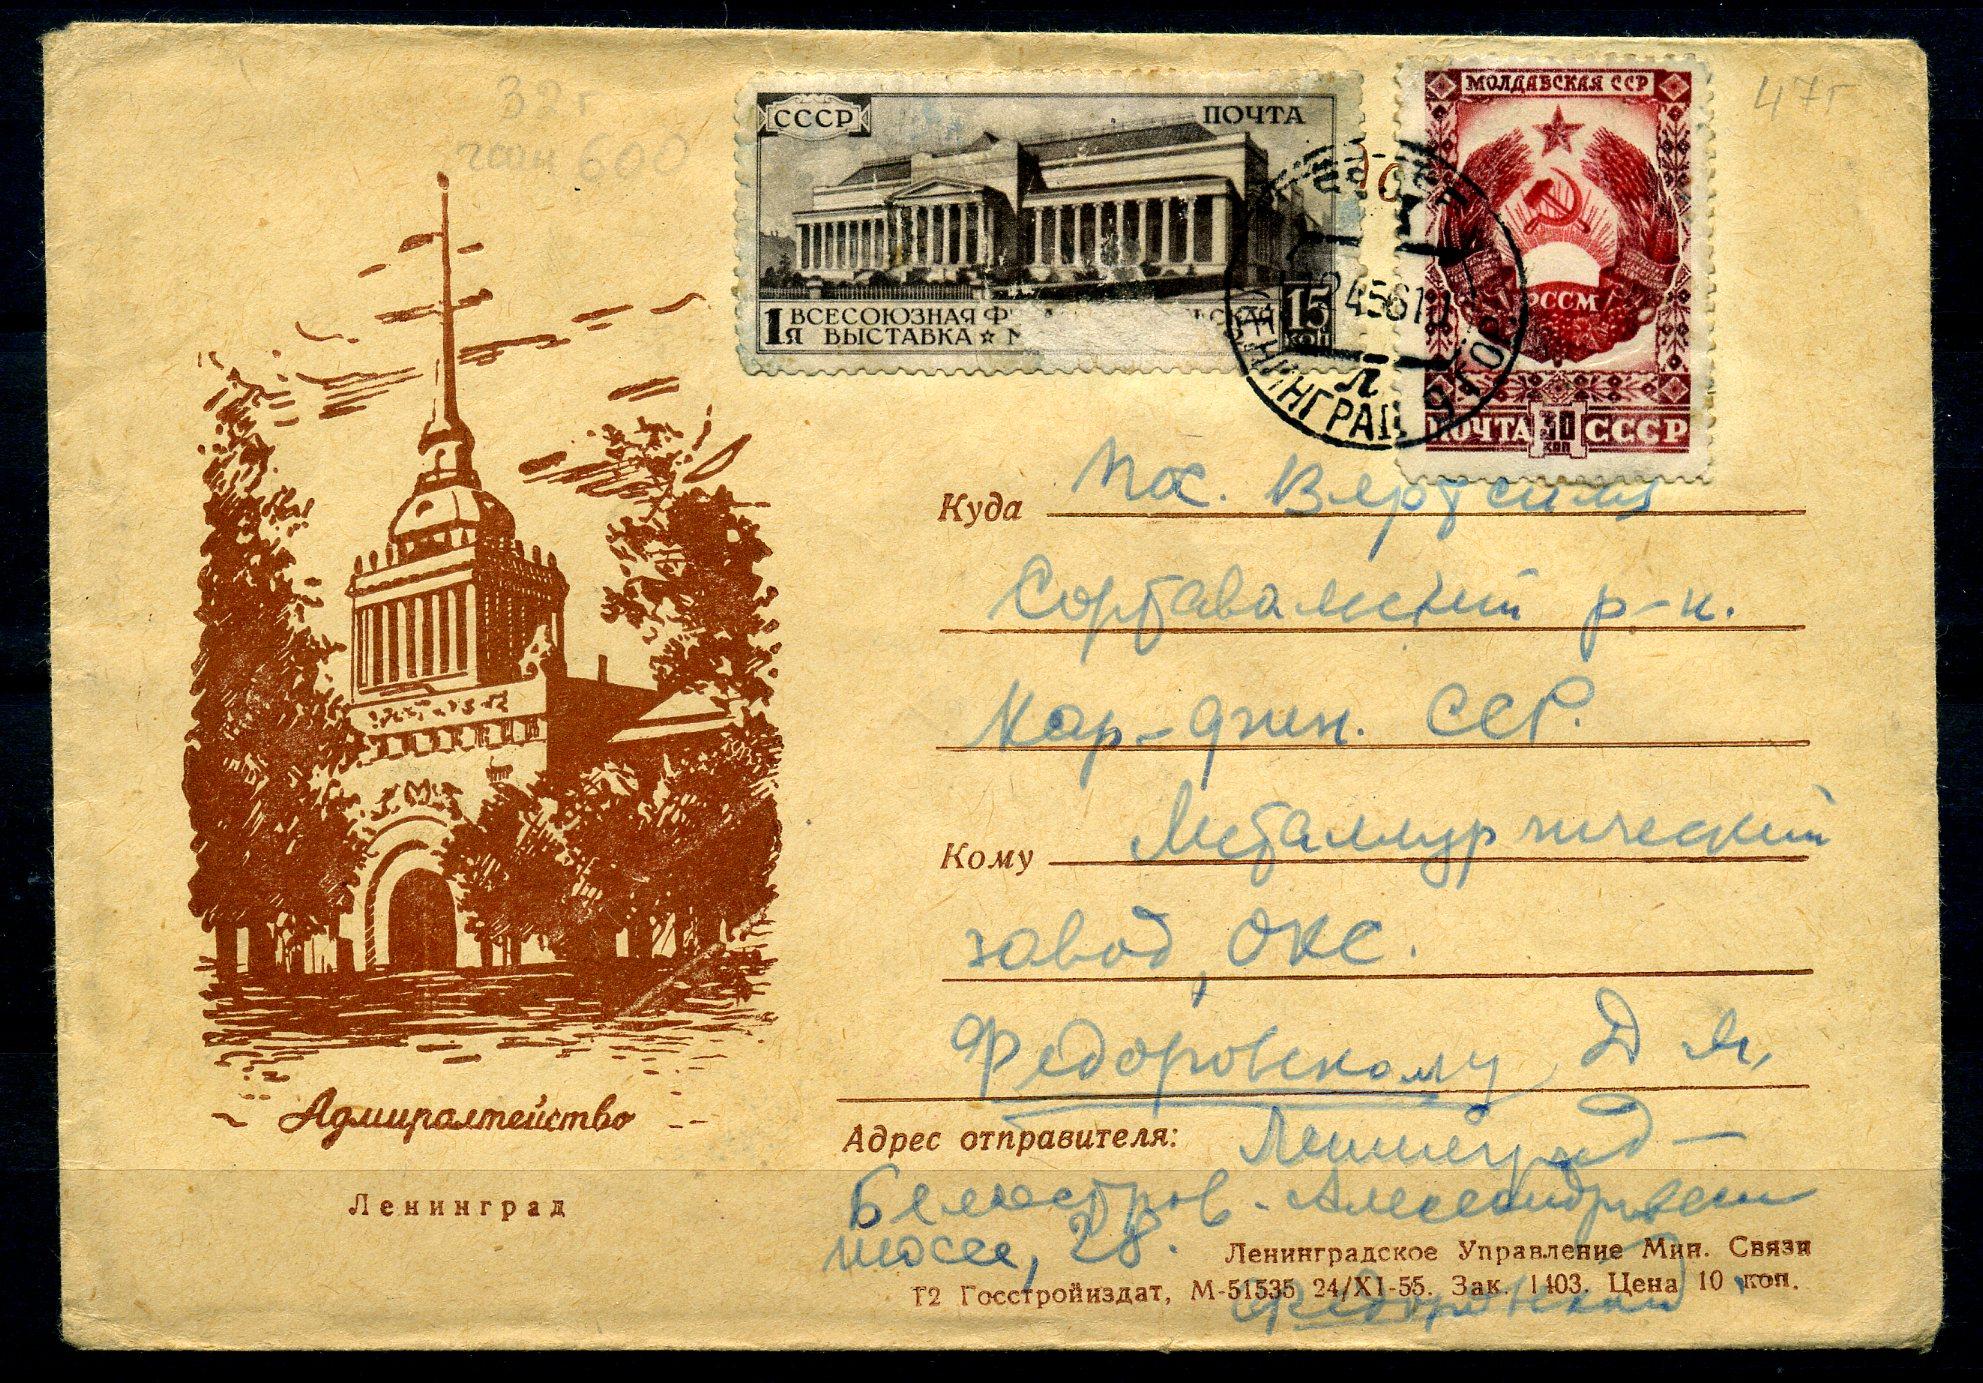 32г
47г
600
СССР
ПОЧТА
1я ВСЕСОЮЗНАЯ
ВЫСТАВКА ☆
15
КОП
МОЛДАВСКАЯ ССР
РССМ
ПОЧТА 30 КОП СССР
ЛЕНИНГРАД
Куда Пос. Вяртсиля
Сортавальский р-н.
Кар-фин. ССР.
Кому Металлургический
завод, ОКС.
Федоровскому Д Я,
Адрес отправителя: Ленинград –
Белоостров. Александровск
шоссе, 28.
Федоровский
Адмиралтейство
Ленинград
Ленинградское Управление Мин. Связи
Т2 Госстройиздат, М-51535 24/XI-55. Зак. 1403. Цена 10 коп.